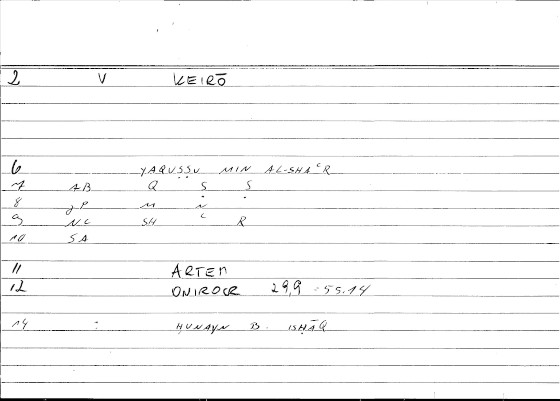 2 V KEIRŌ
6 YAQUṢṢU MIN AL-SHAʿR
7 AB Q Ṣ Ṣ
8 JP M N
9 NC SH ʿ R
10 SA
11 ARTEM
12 ONIROCR 29,9 - 55.14
14 : ḤUNAYN B. ISḤĀQ